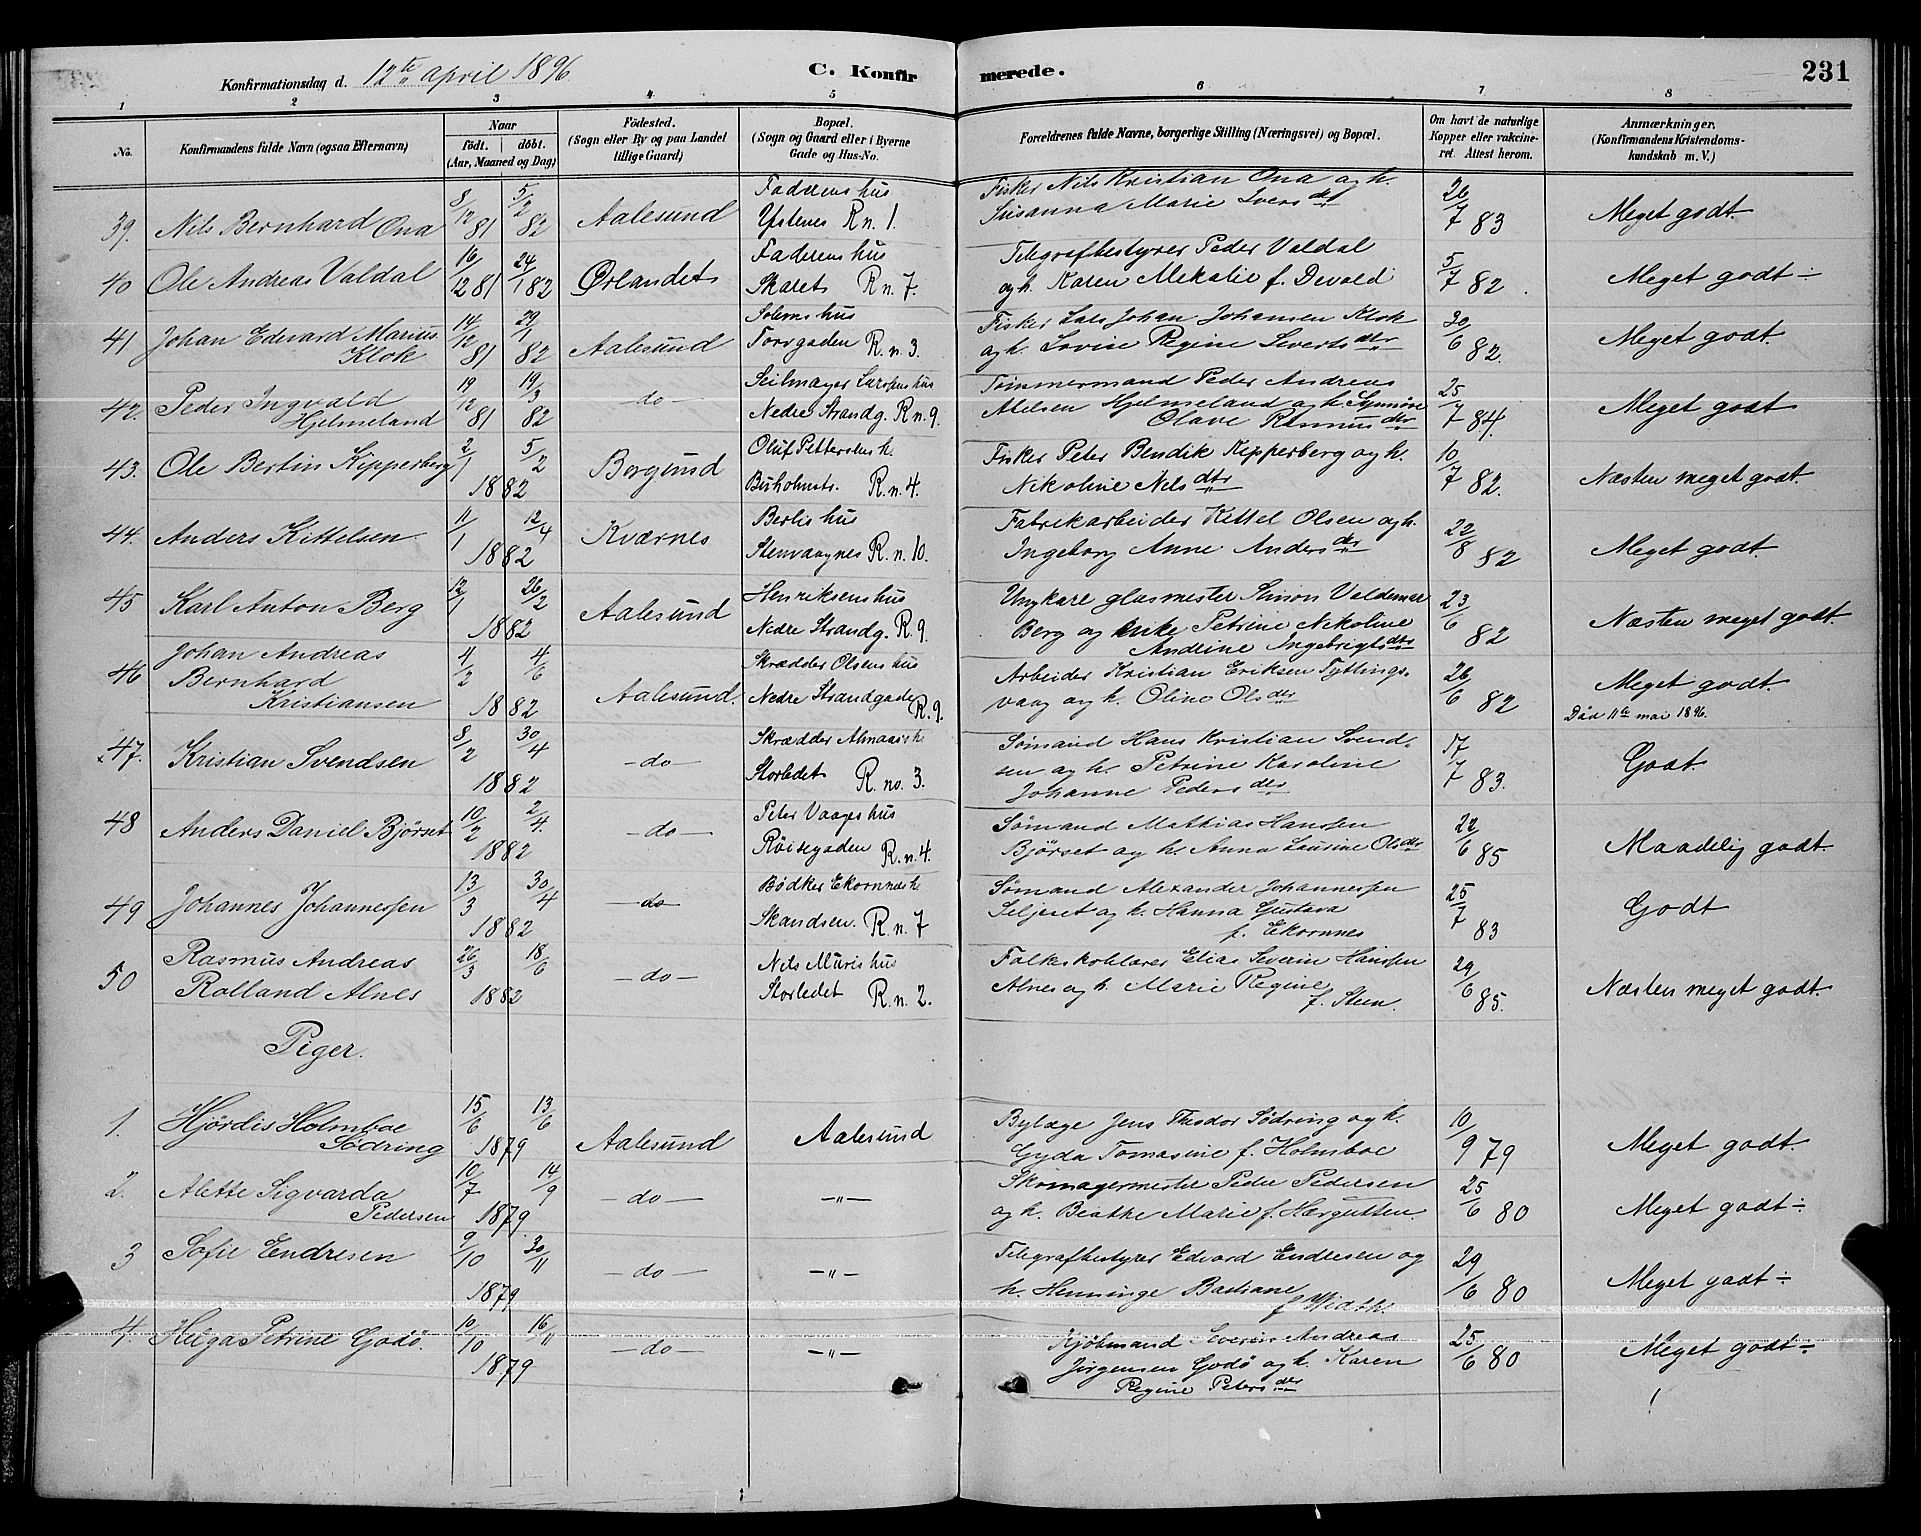 Konfirmationsdag d. 12te april 1896
C. Konfir merede. 231
1 2 3 4 5 6 7 8
No.
Konfirmandens fulde Navn (ogsaa Efternavn)
Naar
födt. döbt.
(Aar, Maaned og Dag)
Födested.
(Sogn eller By og paa Landet
tillige Gaard)
Bopæl.
(Sogn og Gaard eller i Byerne
Gade og Hus-No.
Forældrenes fulde Navne, borgerlige Stilling (Næringsvei) og Bopæl.
Om havt de naturlige
Kopper eller vakcine-
ret. Attest herom.
Anmærkninger,
(Konfirmandens Kristendoms-
kundskab m. V.)
39. Nils Bernhard Ona 8/12 81 5/2 82 Aalesund
Faderens hus
Ystenes R n. 1.
Fisker Nils Kristian Ona og h.
Susanna Marie Iversdtr
26/7 83 Meget godt.
40 Ole Andreas Valdal 16/12 81 24/1 82 Ørlandet
Faderens hus
Skaret R n. 7.
Telegrafbestyrer Peder Valdal
og h. Karen Mekalie f. Devold
5/7 82. Meget godt ÷
41 Johan Edvard Marius
Klok
14/12 81 29/1 82 Aalesund
Solems hus
Torvgaden R. n. 3.
Fisker Lars Johan Johansen Klok
og h. Lovise Regine Sivertsdtr
30/6 82. Meget godt.
42. Peder Ingvald
Hjelmeland
19/12 81 19/3 82 - do -
Seilmager Larsens hus
Nedre Strandg. R n. 9.
Tømmermand Peder Andreas
Atelsen Hjelmeland og h. Synnøve
Olave Rasmusdtr
25/7 84. Meget godt
43. Ole Bertin Kipperberg 2/1 5/2 1882 Borgund
Oluf Pettersens h.
Buholmstr. R. n. 4.
Fisker Peter Bendik Kipperberg og h.
Nikoline Nilsdtr
10/7 82. Næsten meget godt.
44. Anders Kittelsen 11/1 12/4 1882 Kværnes
Berlis hus
Stenvaagnes R. n. 10.
Fabrikarbeider Kittel Olsen og h.
Ingeborg Anne Andersdtr
22/8 82 Meget godt.
45 Karl Anton Berg 12/1 26/2 1882 Aalesund
Henriksens hus
Nedre Strandg. R. 9.
Ungkare glasmester Simon Valdemar
Berg og enke Petrine Nikoline
Andrine Ingebrigtsdtr
23/6 82 Næsten meget godt
46 Johan Andreas
Bernhard
Kristiansen
4/2 4/6 1882 Aalesund.
Skrædder Olsens hus
Nedre Strandgade
R. 9.
Arbeider Kristian Eriksen Tyttings-
vaag og h. Oline Olsdtr
26/6 82 Meget godt.
Død 11te mai 1896.
47. Kristian Svendsen 8/2 30/4 1882 - do -
Skrædder Almaas h.
Storledet R. no. 3.
Sømand Hans Kristian Svend-
sen og h. Petrine Karoline
Johanne Pedersdtr
17/7 83. Godt.
48 Anders Daniel Bjørset 10/2 2/4. 1882 - do -
Peter Vaages hus
Røisegaden R. n. 4.
Sømand Mathias Hanssen
Bjørset og h. Anna Laurine Olsdtr
22/6 85 Maadelig godt.
49 Johannes Johannessen 13/3 30/4 1882 - do -
Bødker Ekornnes h.
Skandsen. R. n. 7
Sømand Alexander Johannessen
Seljeset og h. Hanna Gustava
f. Ekornnes
25/7 83 Godt
50 Rasmus Andreas
Rolland Alnes
26/3 18/6 1882 - do -
Nils Muris hus
Storledet R. n. 2.
Folkeskolelærer Elias Severin Hanssen
Alnes og h. Marie Regine
f. Steen.
29/6 85. Næsten meget godt.
Piger.
1. Hjørdis Holmboe
Södring
15/6 13/6 1879 Aalesund Aalesund
Bylæge Jens Theodor Södring og h.
Gyda Tomasine f. Holmboe
10/9 79 Meget godt.
2. Alette Sigvarda
Pedersen
10/7 14/9 1879. - do - - " -
Skomagermester Peder Pedersen
og h. Beathe Marie f. Hargutten.
25/6 80 Meget godt ÷
3 Sofie Endresen 9/10 30/11 1879 - do - - " -
Telegrafbestyrer Edvard Endresen og
h. Henninge Bastiane
29/6 80 Meget godt ÷
4 Helga Petrine Godø. 10/10 16/11 1879 - do - - " -
Kjøbmand Severin Andreas
Jørgensen Godø og h. Karen
Regine Petersdtr
25/6 80 Meget godt ÷